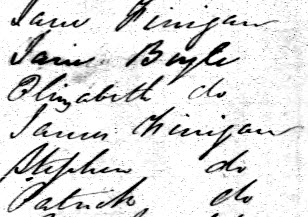 Jane Finigan
Jane Boyle
Elizabeth do
James Finigan
Stephen do
Patrick do